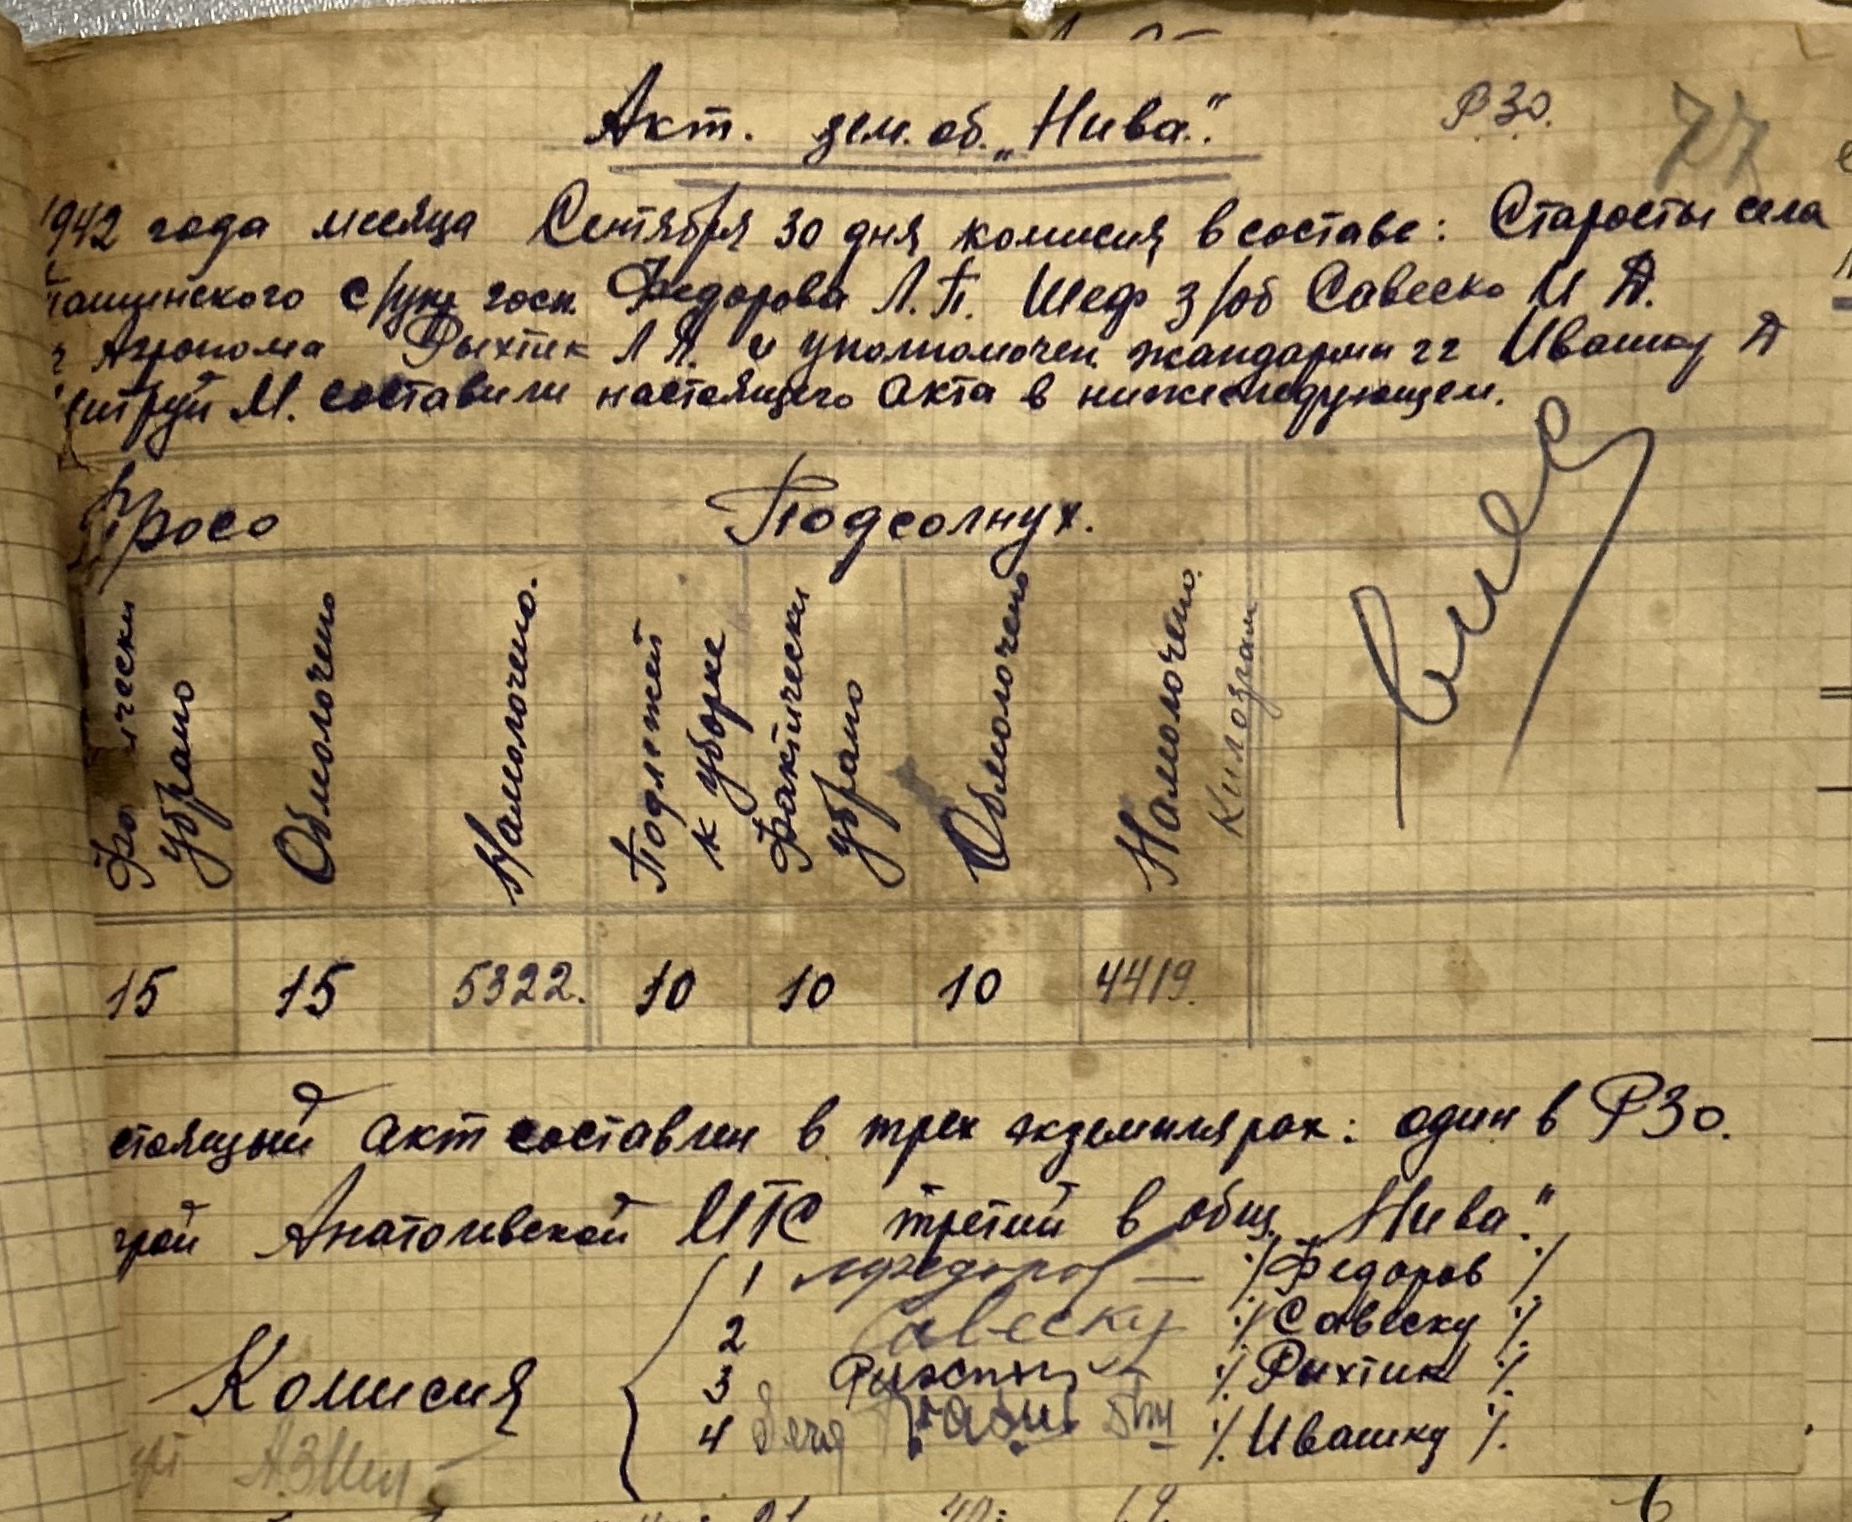 Акт. зем. об. „Нива".
РЗО.
77
1942 года месяца Сентября 30 дня комисия в составе: Старосты села
с/упр госп. Федорова Л. П. Шеф з/об Савеско И А.
Агронома Рыхтик Л А. и уполномочен. жандарми гг Ивашку А
М. составили настоящего Акта в нижеследующем.
Просо
Подсолнух.
убрано
Обмолочено
Намолочено.
Подлежит к уборке
Фактически убрано
Обмолочено
Намолочено. Килограм
15 15 5322. 10 10 10 4419.
стоящый акт составлен в трех экземплярах: один в РЗО.
Анатолевской МТС третий в общ. „Нива".
1 Федоров ./Федоров/.
2 Савеску ./Савеску/.
Комисия
3 ./Рыхтик/.
4 ./Ивашку/.